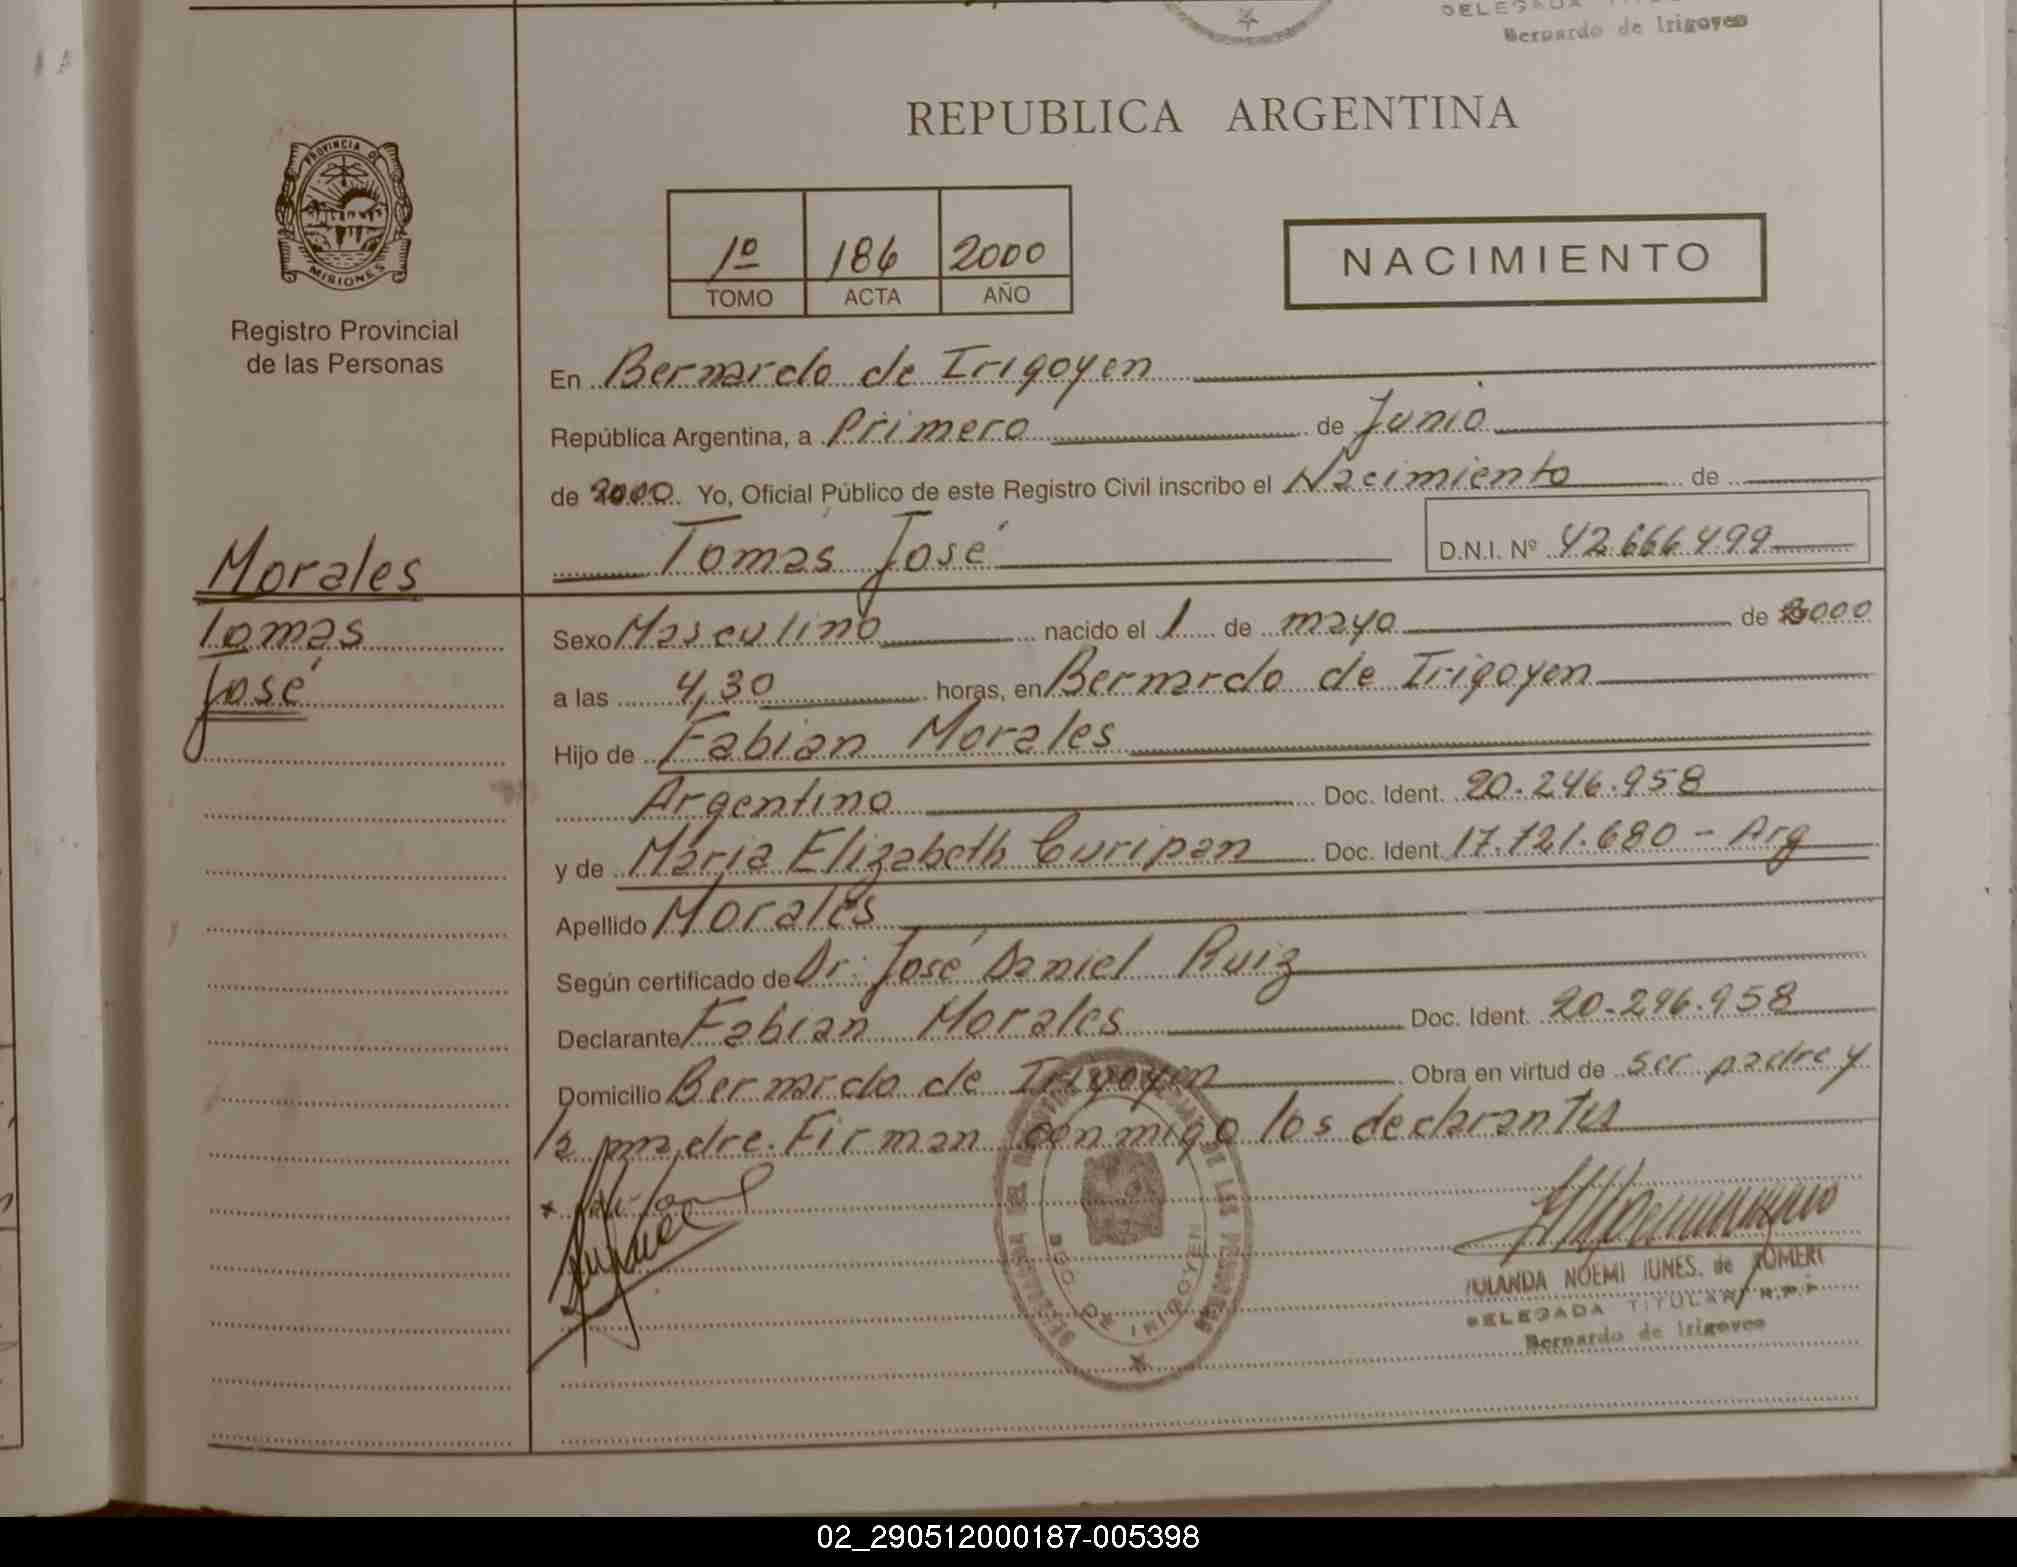 Bernardo de Irigoyen
REPUBLICA ARGENTINA
PROVINCIA DE
MISIONES
Registro Provincial
de las Personas
1º 186 2000
TOMO ACTA AÑO
NACIMIENTO
En Bernardo de Irigoyen
República Argentina, a Primero de Junio
de 2000. Yo, Oficial Público de este Registro Civil inscribo el Nacimiento de
Tomas José D.N.I. Nº 42.666.499
Morales
Tomas
José
Sexo Masculino nacido el 1 de mayo de 2000
a las 4,30 horas, en Bernardo de Irigoyen
Hijo de Fabian Morales
Argentino Doc. Ident. 20.246.958
y de Maria Elizabeth Curipan Doc. Ident. 17.121.680 - Arg
Apellido Morales
Según certificado de Dr. José Daniel Ruiz
Declarante Fabian Morales Doc. Ident. 20.246.958
Domicilio Bernardo de Irigoyen Obra en virtud de ser padre y
la madre. Firman conmigo los declarantes
NOEMI IUNES. de
DELEGADA TITULAR R.P.P
Bernardo de Irigoyen
02_290512000187-005398